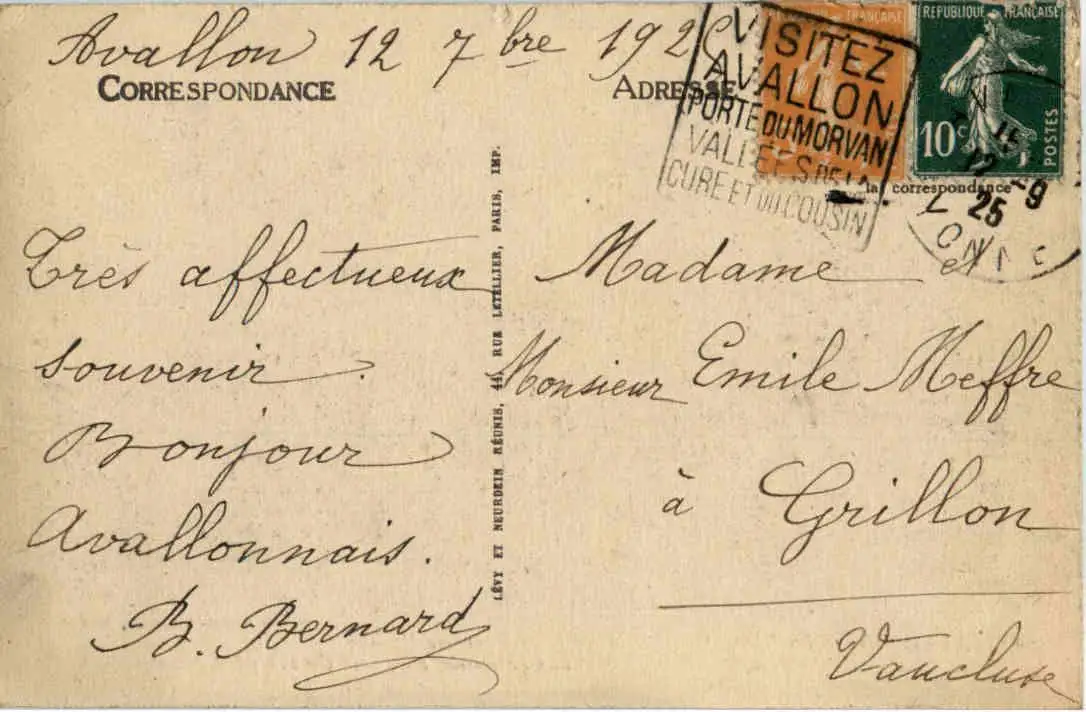 Avallon 12 7bre 1925
CORRESPONDANCE
ADRESSE
VISITEZ
AVALLON
PORTE DU MORVAN
VALLÉES DE LA
CURE ET DU COUSIN
FRANÇAISE
RÉPUBLIQUE FRANÇAISE
10c
POSTES
la correspondance
15
12 -9
25
Très affectueux
souvenir.
Bonjour
Avallonnais.
B. Bernard
LÉVY ET NEURDEIN RÉUNIS, 44, RUE LETELLIER, PARIS, IMP.
Madame et
Monsieur Emile Meffre
à Grillon
Vaucluse